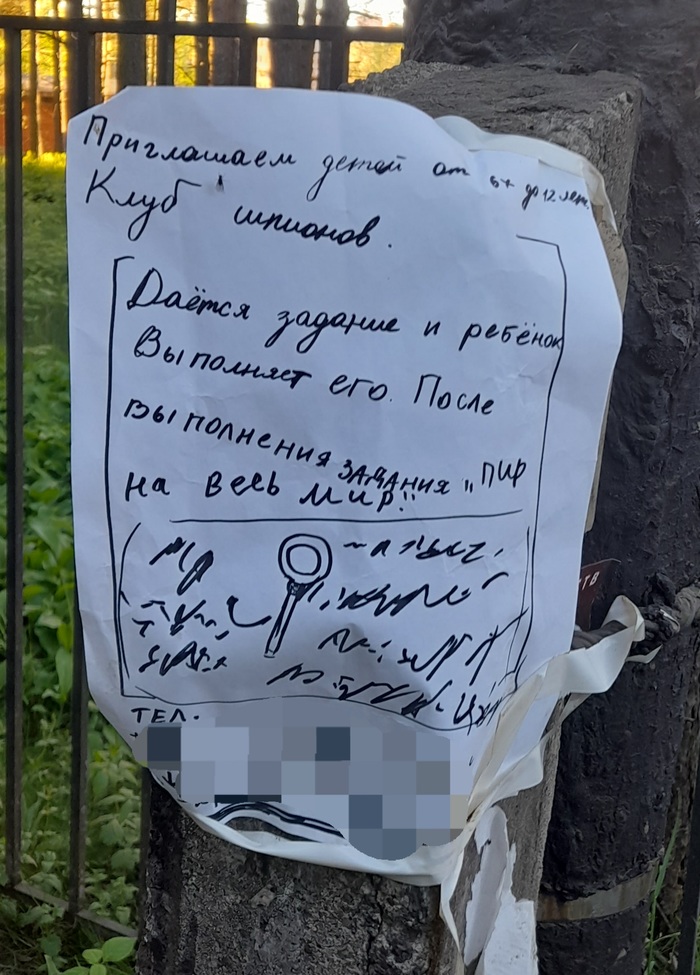 Приглашаем детей от 6+ до 12 лет.
Клуб шпионов.
Даётся задание и ребёнок
Выполняет его. После
выполнения задания „ПИР
на весь мир."
ТЕЛ.